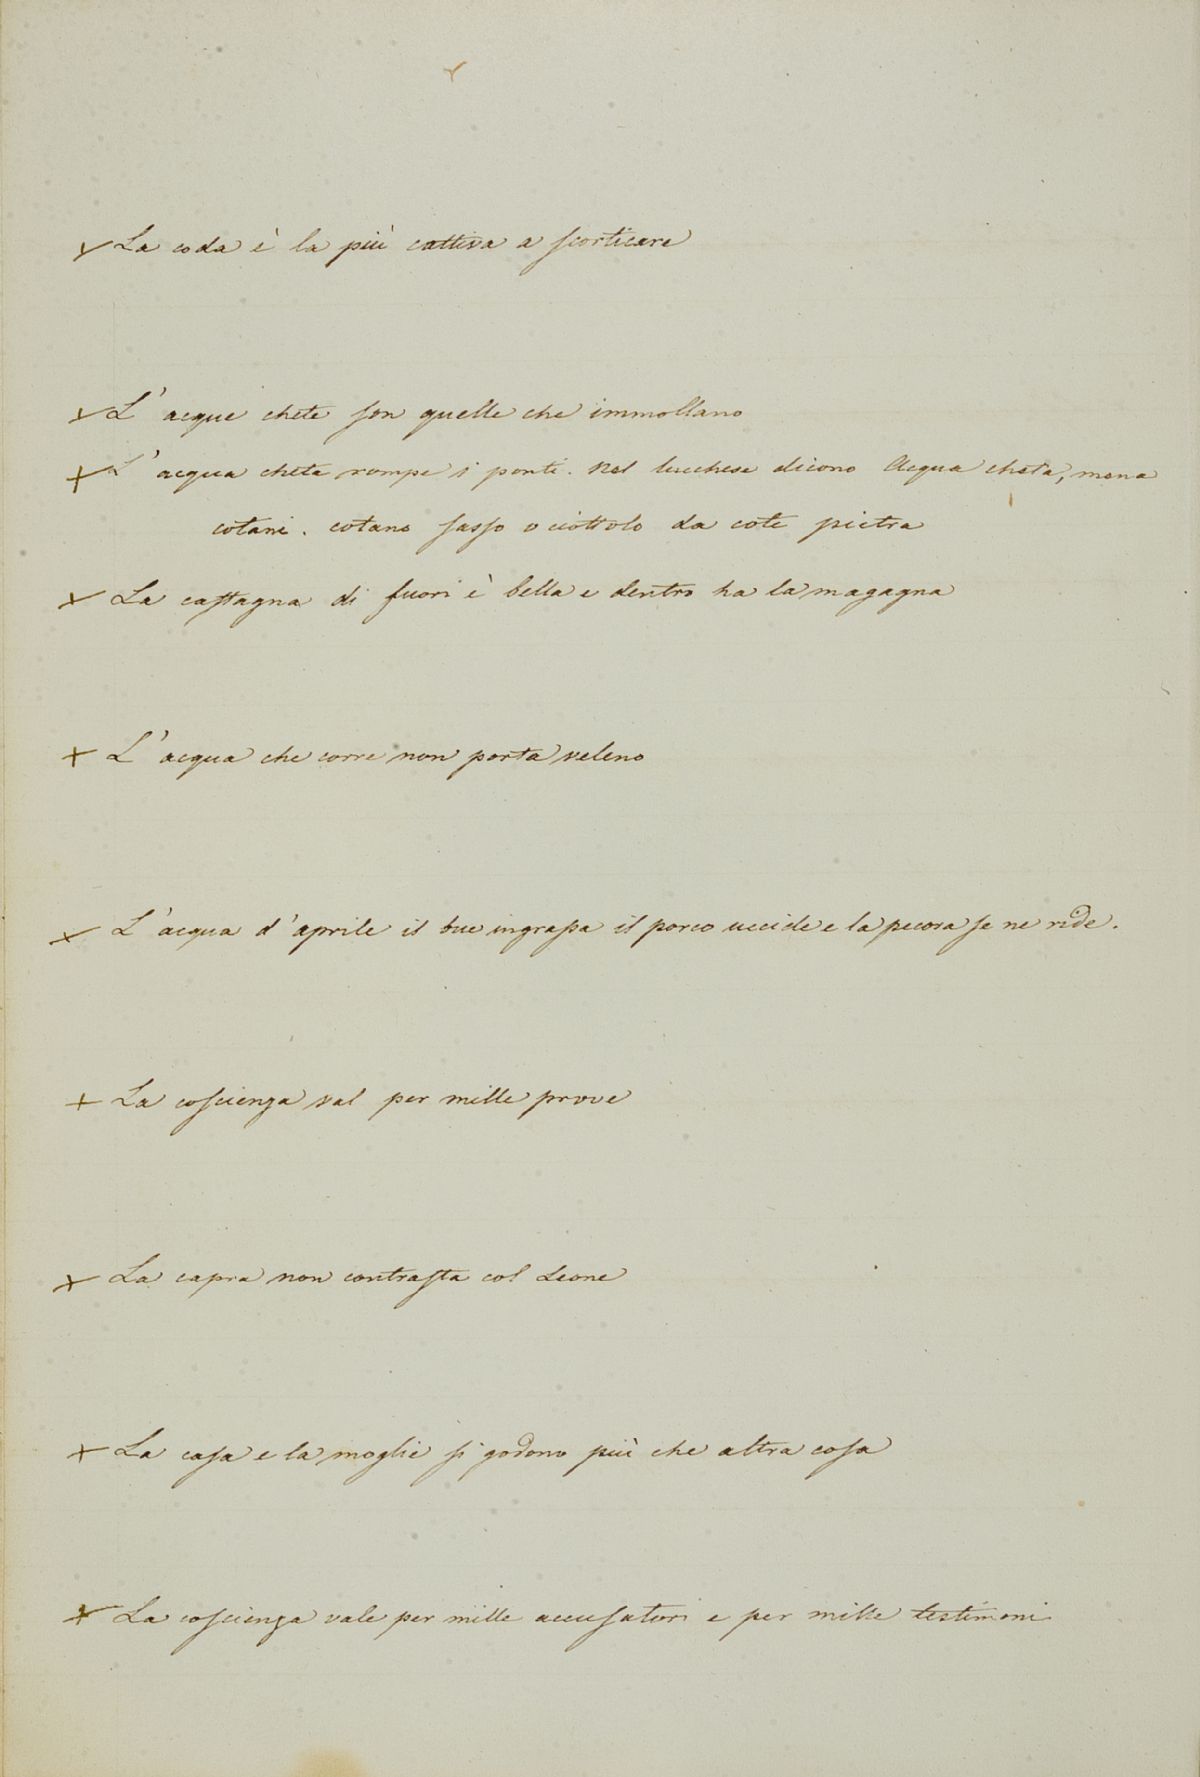 La coda è la più cattiva a scorticare
L' acque chete son quelle che immollano
L' acqua cheta rompe i ponti. Nel lucchese dicono Acqua cheta, mena
cotani. cotano sasso o ciottolo da cote pietra
La castagna di fuori è bella e dentro ha la magagna
L' acqua che corre non porta veleno
L' acqua d' aprile il bue ingrassa il porco uccide e la pecora se ne ride.
La coscienza val per mille prove
La capra non contrasta col Leone
La casa e la moglie si godono più che altra cosa
La coscienza vale per mille accusatori e per mille testimoni